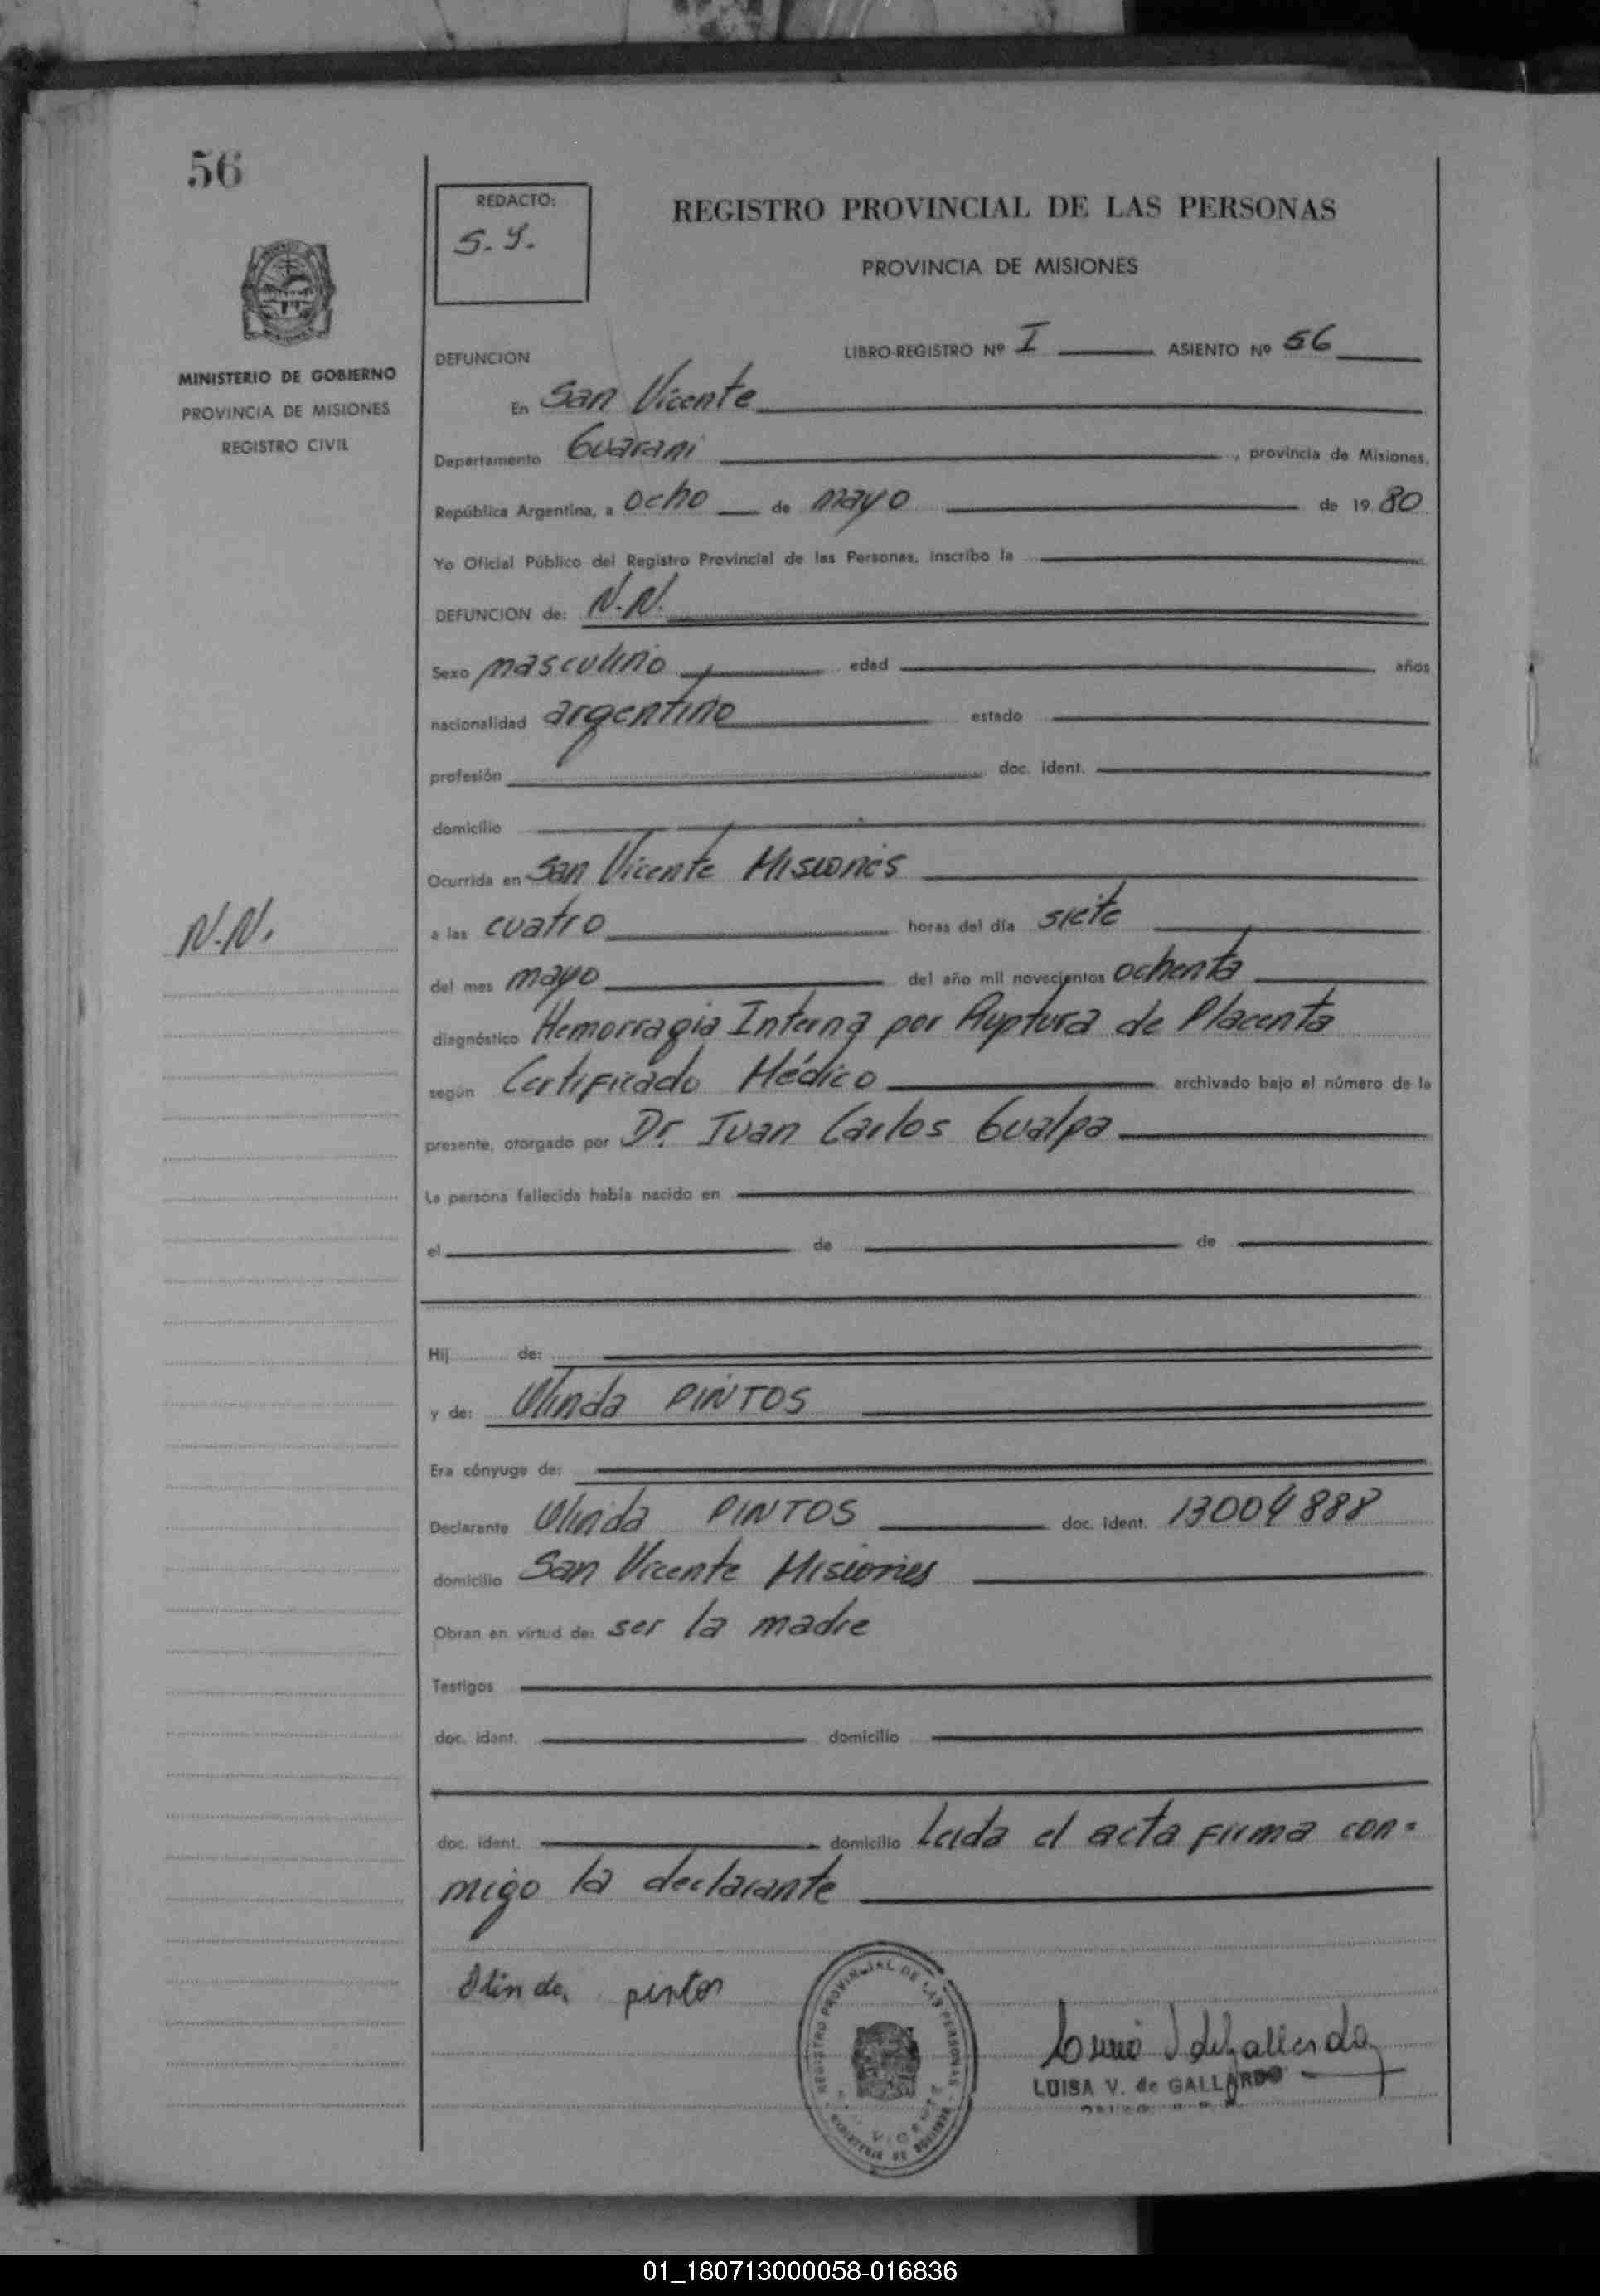 56
REDACTO:
S. Y.
REGISTRO PROVINCIAL DE LAS PERSONAS
PROVINCIA DE MISIONES
MINISTERIO DE GOBIERNO
PROVINCIA DE MISIONES
REGISTRO CIVIL
DEFUNCION LIBRO-REGISTRO Nº I ASIENTO Nº 56
En San Vicente
Departamento Guarani, provincia de Misiones,
República Argentina, a ocho de mayo de 19 80
Yo Oficial Público del Registro Provincial de las Personas, inscribo la
DEFUNCION de: N.N.
Sexo masculino edad años
nacionalidad argentino estado
profesión doc. ident.
domicilio
Ocurrida en San Vicente Misiones
N.N.
a las cuatro horas del día siete
del mes mayo del año mil novecientos ochenta
diagnóstico Hemorragia Interna por Ruptura de Placenta
según Certificado Médico archivado bajo el número de la
presente, otorgado por Dr. Juan Carlos Gualpa
La persona fallecida había nacido en
el de de
Hij de:
y de: Olinda PINTOS
Era cónyuge de:
Declarante Olinda PINTOS doc. ident. 13004888
domicilio San Vicente Misiones
Obran en virtud de: ser la madre
Testigos
doc. ident. domicilio
doc. ident. domicilio Leida el acta firma con-
migo la declarante
Olinda pintos
REGISTRO PROVINCIAL DE LAS PERSONAS
MINISTERIO DE GOBIERNO
LUISA V. de GALLARDO
01_180713000058-016836